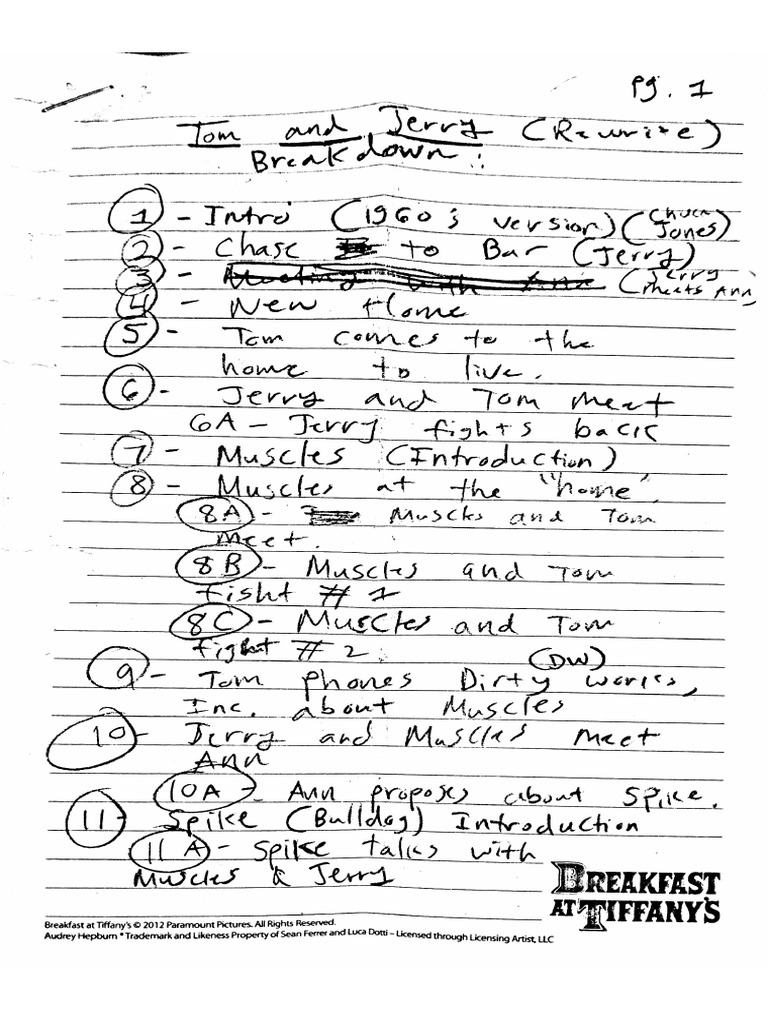 Pg. 1
Tom and Jerry (Rewrite)
Breakdown:
1 - Intro (1960's version) (Chuck Jones)
2 - Chase to Bar (Jerry)
3 - Meeting with Ann (Jerry meets Ann)
4 - New Home
5 - Tom comes to the
home to live.
6 - Jerry and Tom meet
6A - Jerry fights back
7 - Muscles (Introduction)
8 - Muscles at the "home".
8A - Muscles and Tom
meet.
8B - Muscles and Tom
fight # 1
8C - Muscles and Tom
fight # 2
(DW)
9 - Tom phones Dirty works,
Inc. about Muscles
10 - Jerry and Muscles meet
Ann
10A - Ann proposes about Spike.
11 - Spike (Bulldog) Introduction
11A - Spike talks with
Muscles & Jerry
BREAKFAST
AT TIFFANY'S
Breakfast at Tiffany's © 2012 Paramount Pictures. All Rights Reserved.
Audrey Hepburn * Trademark and Likeness Property of Sean Ferrer and Luca Dotti – Licensed through Licensing Artist, LLC